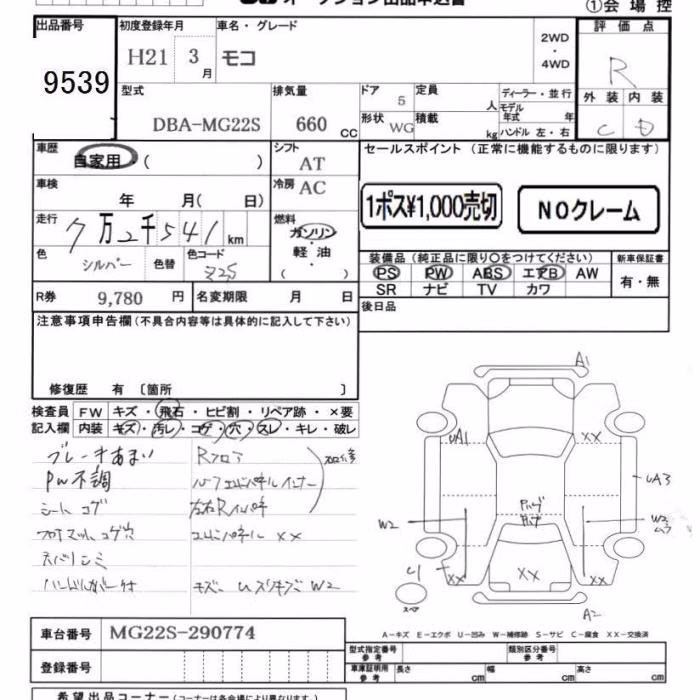 オークション出品申込書
①会場控
出品番号
9539
初度登録年月
H21 3月
車名・グレード
モコ
2WD
・
4WD
評価点
R
外装 内装
C D
型式
DBA-MG22S
排気量
660 CC
ドア 5
形状 WG
定員 人
積載 kg
ディーラー・並行
モデル年式 年
ハンドル 左・右
車歴
自家用・( )
シフト
AT
車検
年 月( 日)
冷房
AC
走行
7万2千541km
燃料
ガソリン
軽油
( )
色
シルバー
色替
色コード
Z2S
R券
9,780 円
名変期限 月 日
セールスポイント (正常に機能するものに限ります)
1ポス¥1,000売切
NOクレーム
装備品 (純正品に限り○をつけてください)
PS PW ABS エアB AW
SR ナビ TV カワ
新車保証書
有・無
後日品
注意事項申告欄(不具合内容等は具体的に記入して下さい)
修復歴 有 〔箇所 〕
検査員記入欄
FW キズ・飛石・ヒビ割・リペア跡・×要
内装 キズ・汚レ・コゲ・穴・スレ・キレ・破レ
ブレーキあまい
PW不調
シートコゲ
フロアマットコゲ穴
ハンドルカバー付
Rフロア
バックエンドパネルインナー
左右Rインパネ
エンドパネル XX
A1
UA1
XX
UA3
W2
W2
XX
XX
XX
スペア
A2
A-キズ E-エクボ U-凹み W-補修跡 S-サビ C-腐食 XX-交換済
車台番号
MG22S-290774
登録番号
型式指定番号
参考
類別区分番号
参考
車庫証明用
参考
長さ cm
幅 cm
高さ cm
希望出品コーナー(コーナーは各会場により異なります。)